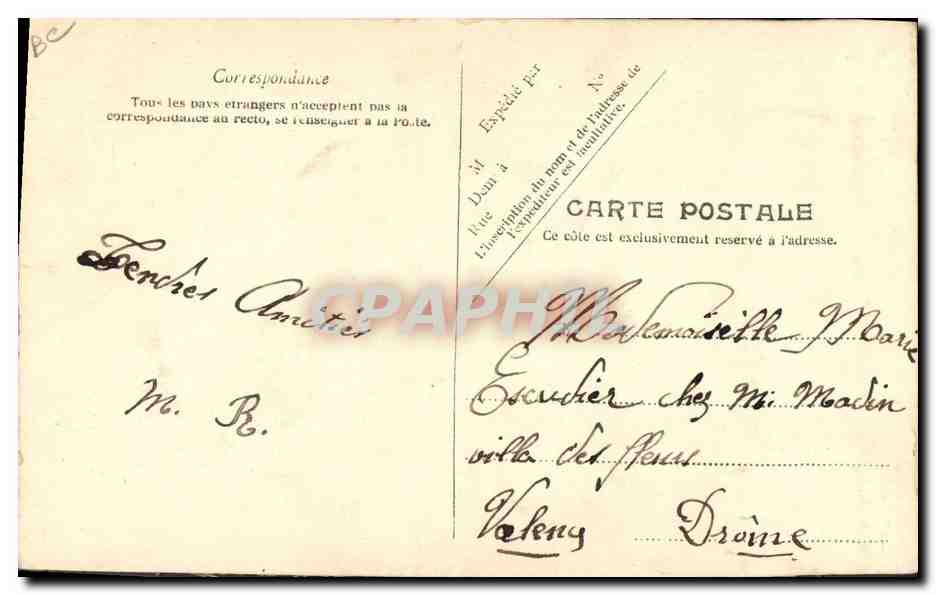 BC
Correspondance
Tous les pays etrangers n'acceptent pas la
correspondance au recto, se renseigner à la Poste.
Tendres Amitiés
M. R.
Expédié par
M
Dem à
Rue
N°
L'inscription du nom et de l'adresse de
l'expéditeur est facultative.
CARTE POSTALE
Ce côte est exclusivement reservé à l'adresse.
CPAPHIL
Mademoiselle Marie
Escudier chez M. Madin
villa des fleurs
Valence Drôme